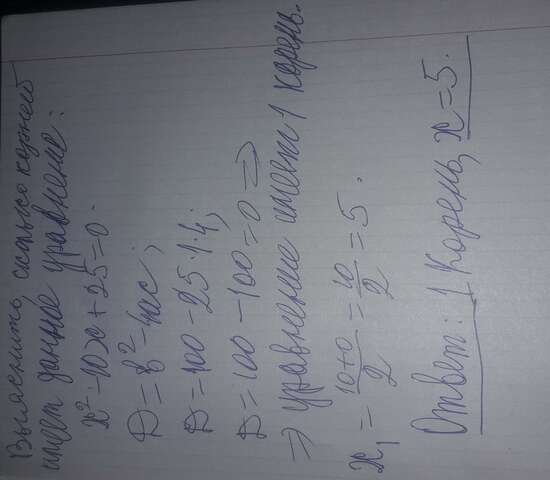 Выяснить сколько корней
имеет данное уравнение:
x² - 10x + 25 = 0.
D = b² - 4ac;
D = 100 - 25·1·4;
D = 100 - 100 = 0 ⇒
⇒ уравнение имеет 1 корень.
x₁ = (10+0)/2 = 10/2 = 5.
Ответ: 1 корень, x = 5.